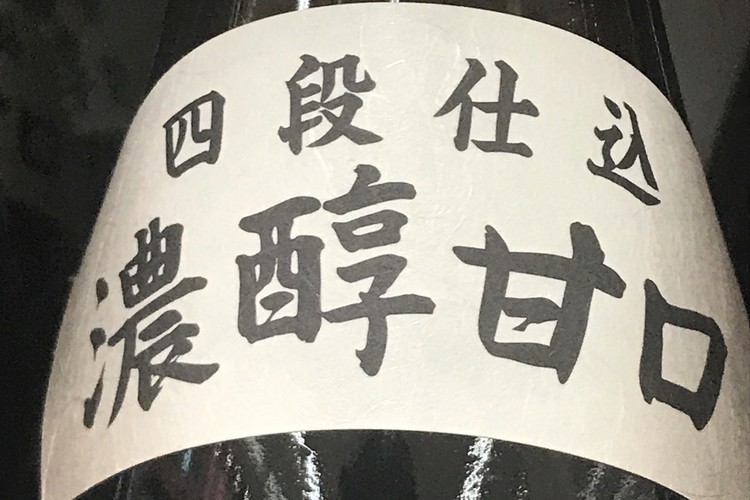 四段仕込
濃醇甘口